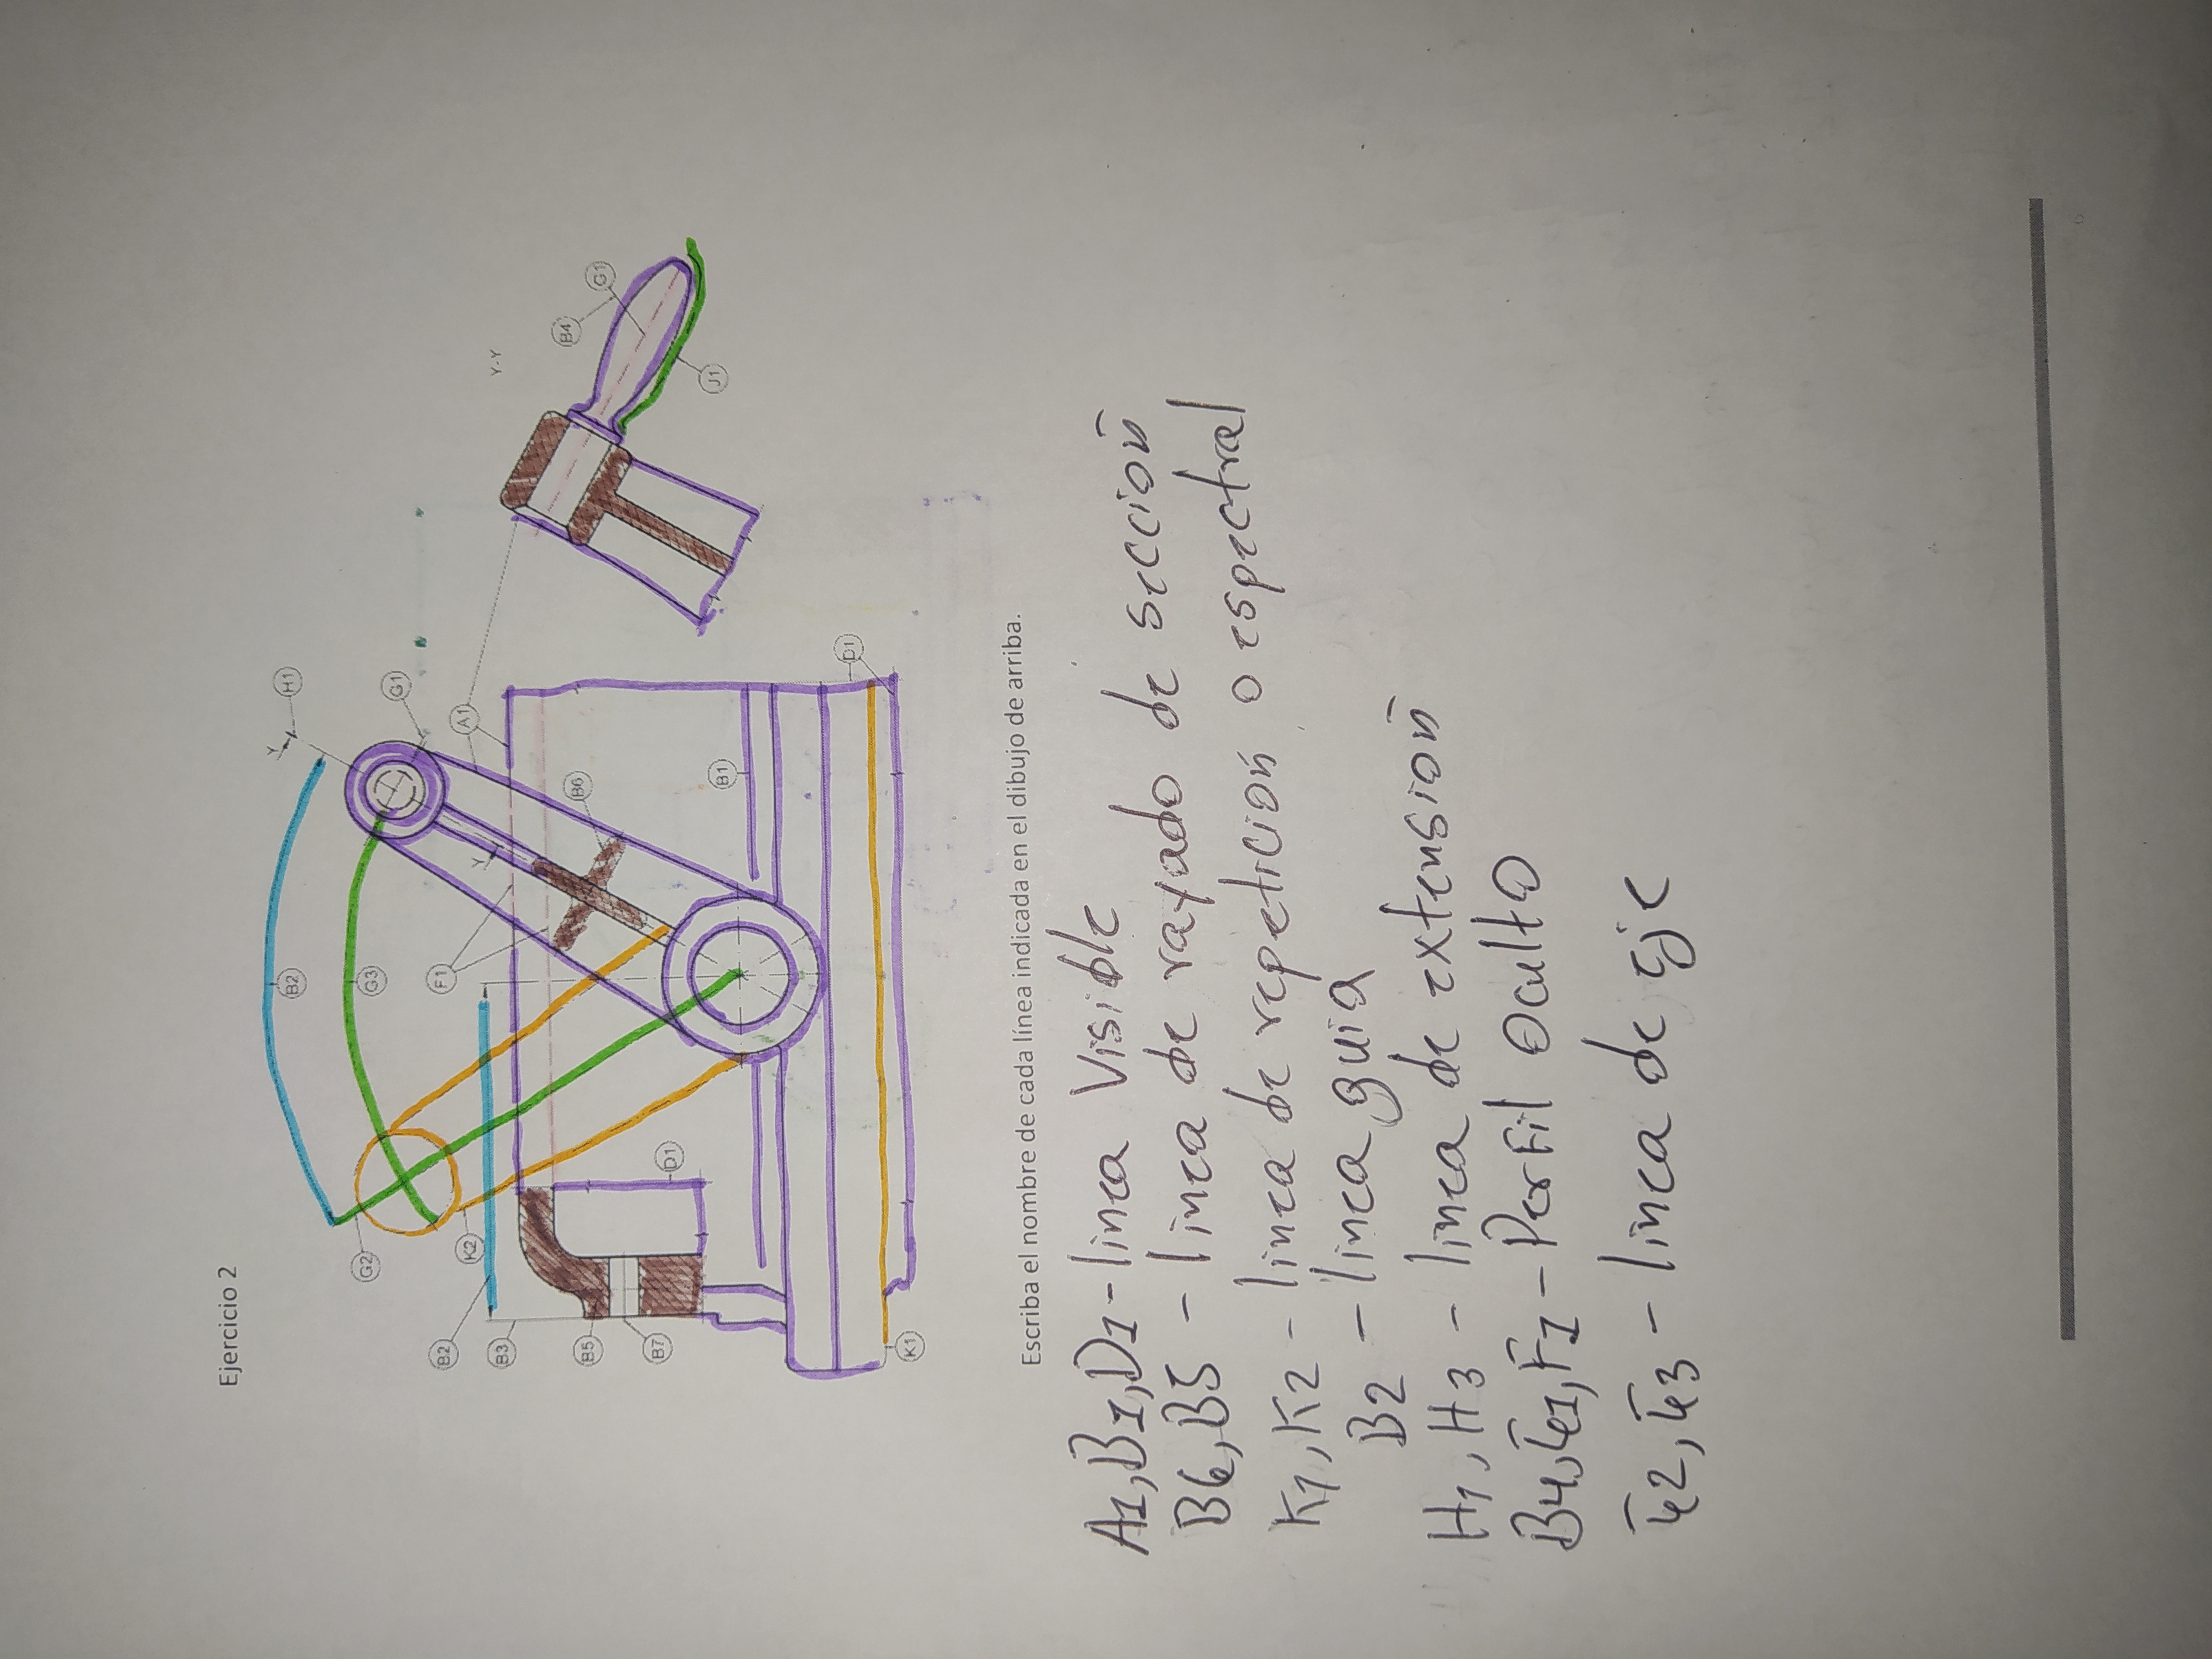 Ejercicio 2
Y
H1
B2
G2
G3
G1
B2
F1
K2
A1
Y
B3
Y-Y
B5
B6
B4
G1
B7
D1
J1
B1
D1
K1
Escriba el nombre de cada línea indicada en el dibujo de arriba.
A1, B1, D1 - linea Visible
B6, B5 - linea de rayado de sección
K1, K2 - linea de repetición o espectral
B2 - linea guia
H1, H3 - linea de extensión
B4, G1, F1 - Perfil oculto
G2, G3 - linea de eje
6